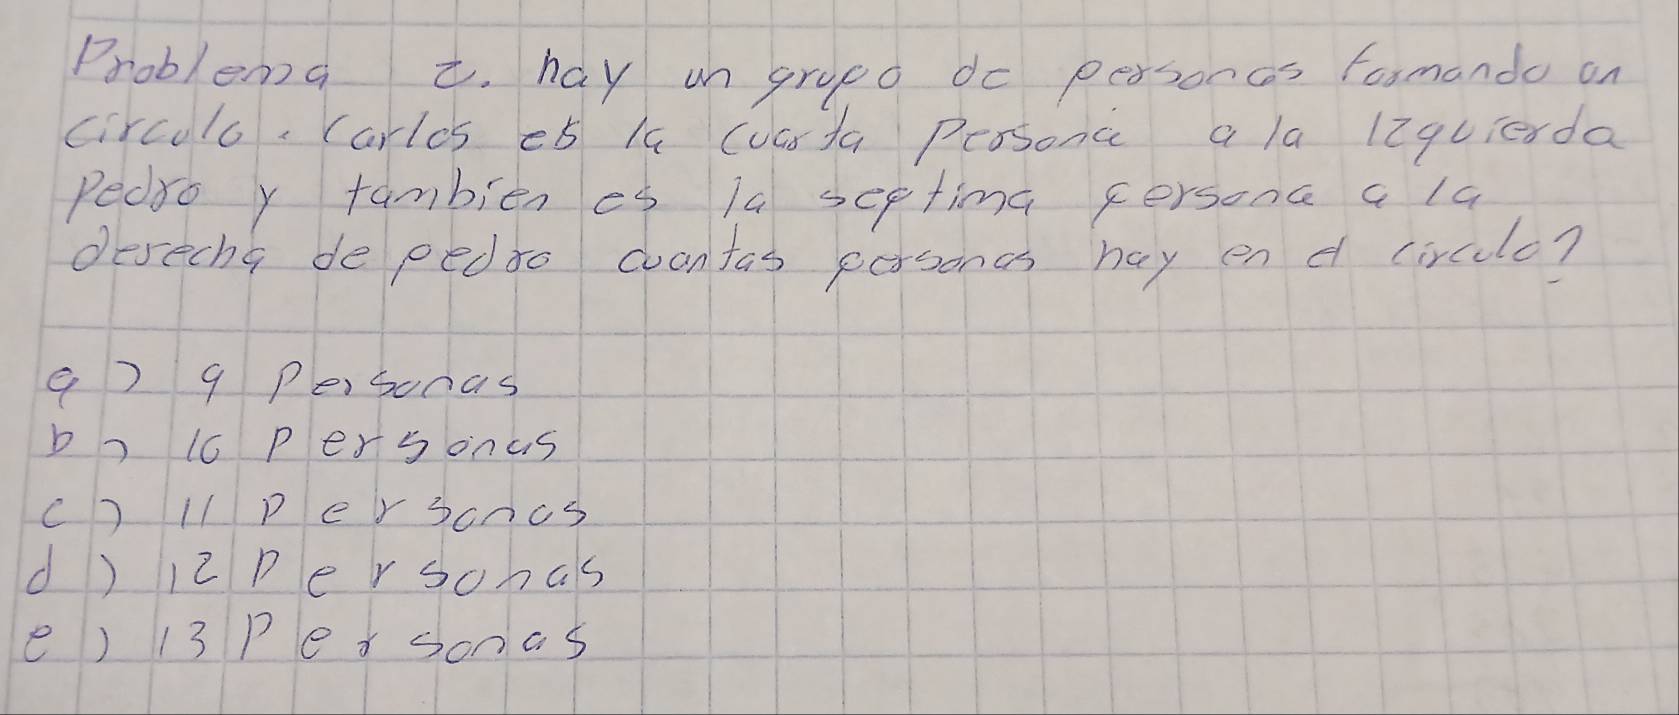 Problema 2. hay un grupo de personas formando un
circulo. Carlos es la cuarta Persona a la Izquierda
pedro y tambien es la septima persona a la
derecha de pedro cuantas personas hay en el circulo?
a) 9 Personas
b) 10 Personas
c) 11 Personas
d) 12 Personas
e) 13 Personas